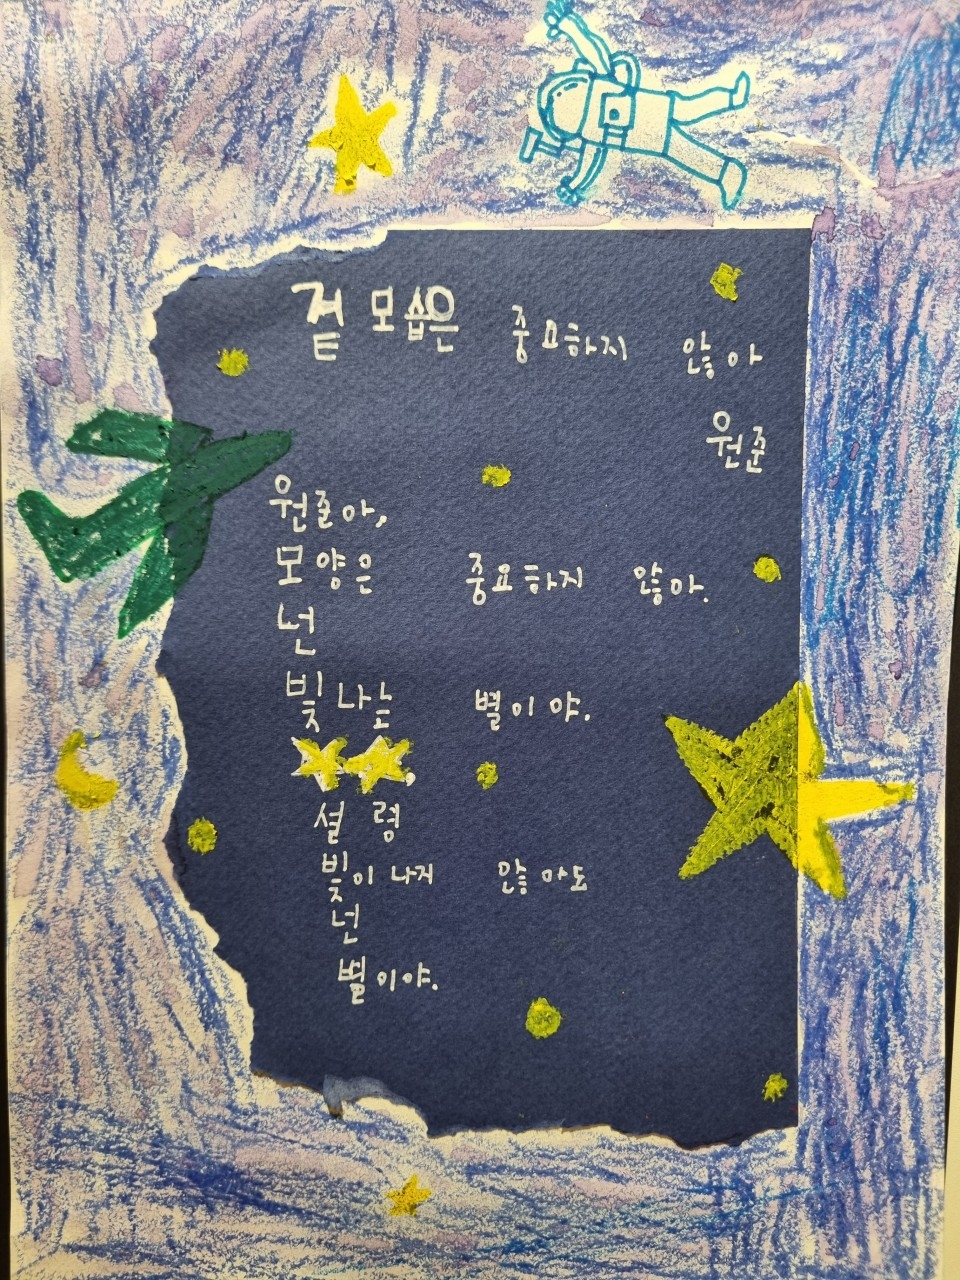 겉 모습은 중요하지 않아
원준
원준아,
모양은 중요하지 않아.
넌
빛나는 별이야.
설령
빛이 나지 않아도
넌
별이야.